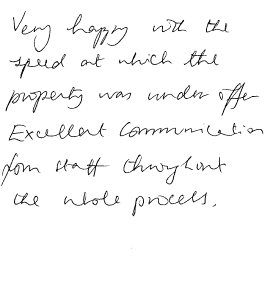 Very happy with the
speed at which the
property was under offer
Excellent Communication
from staff throughout
the whole process.